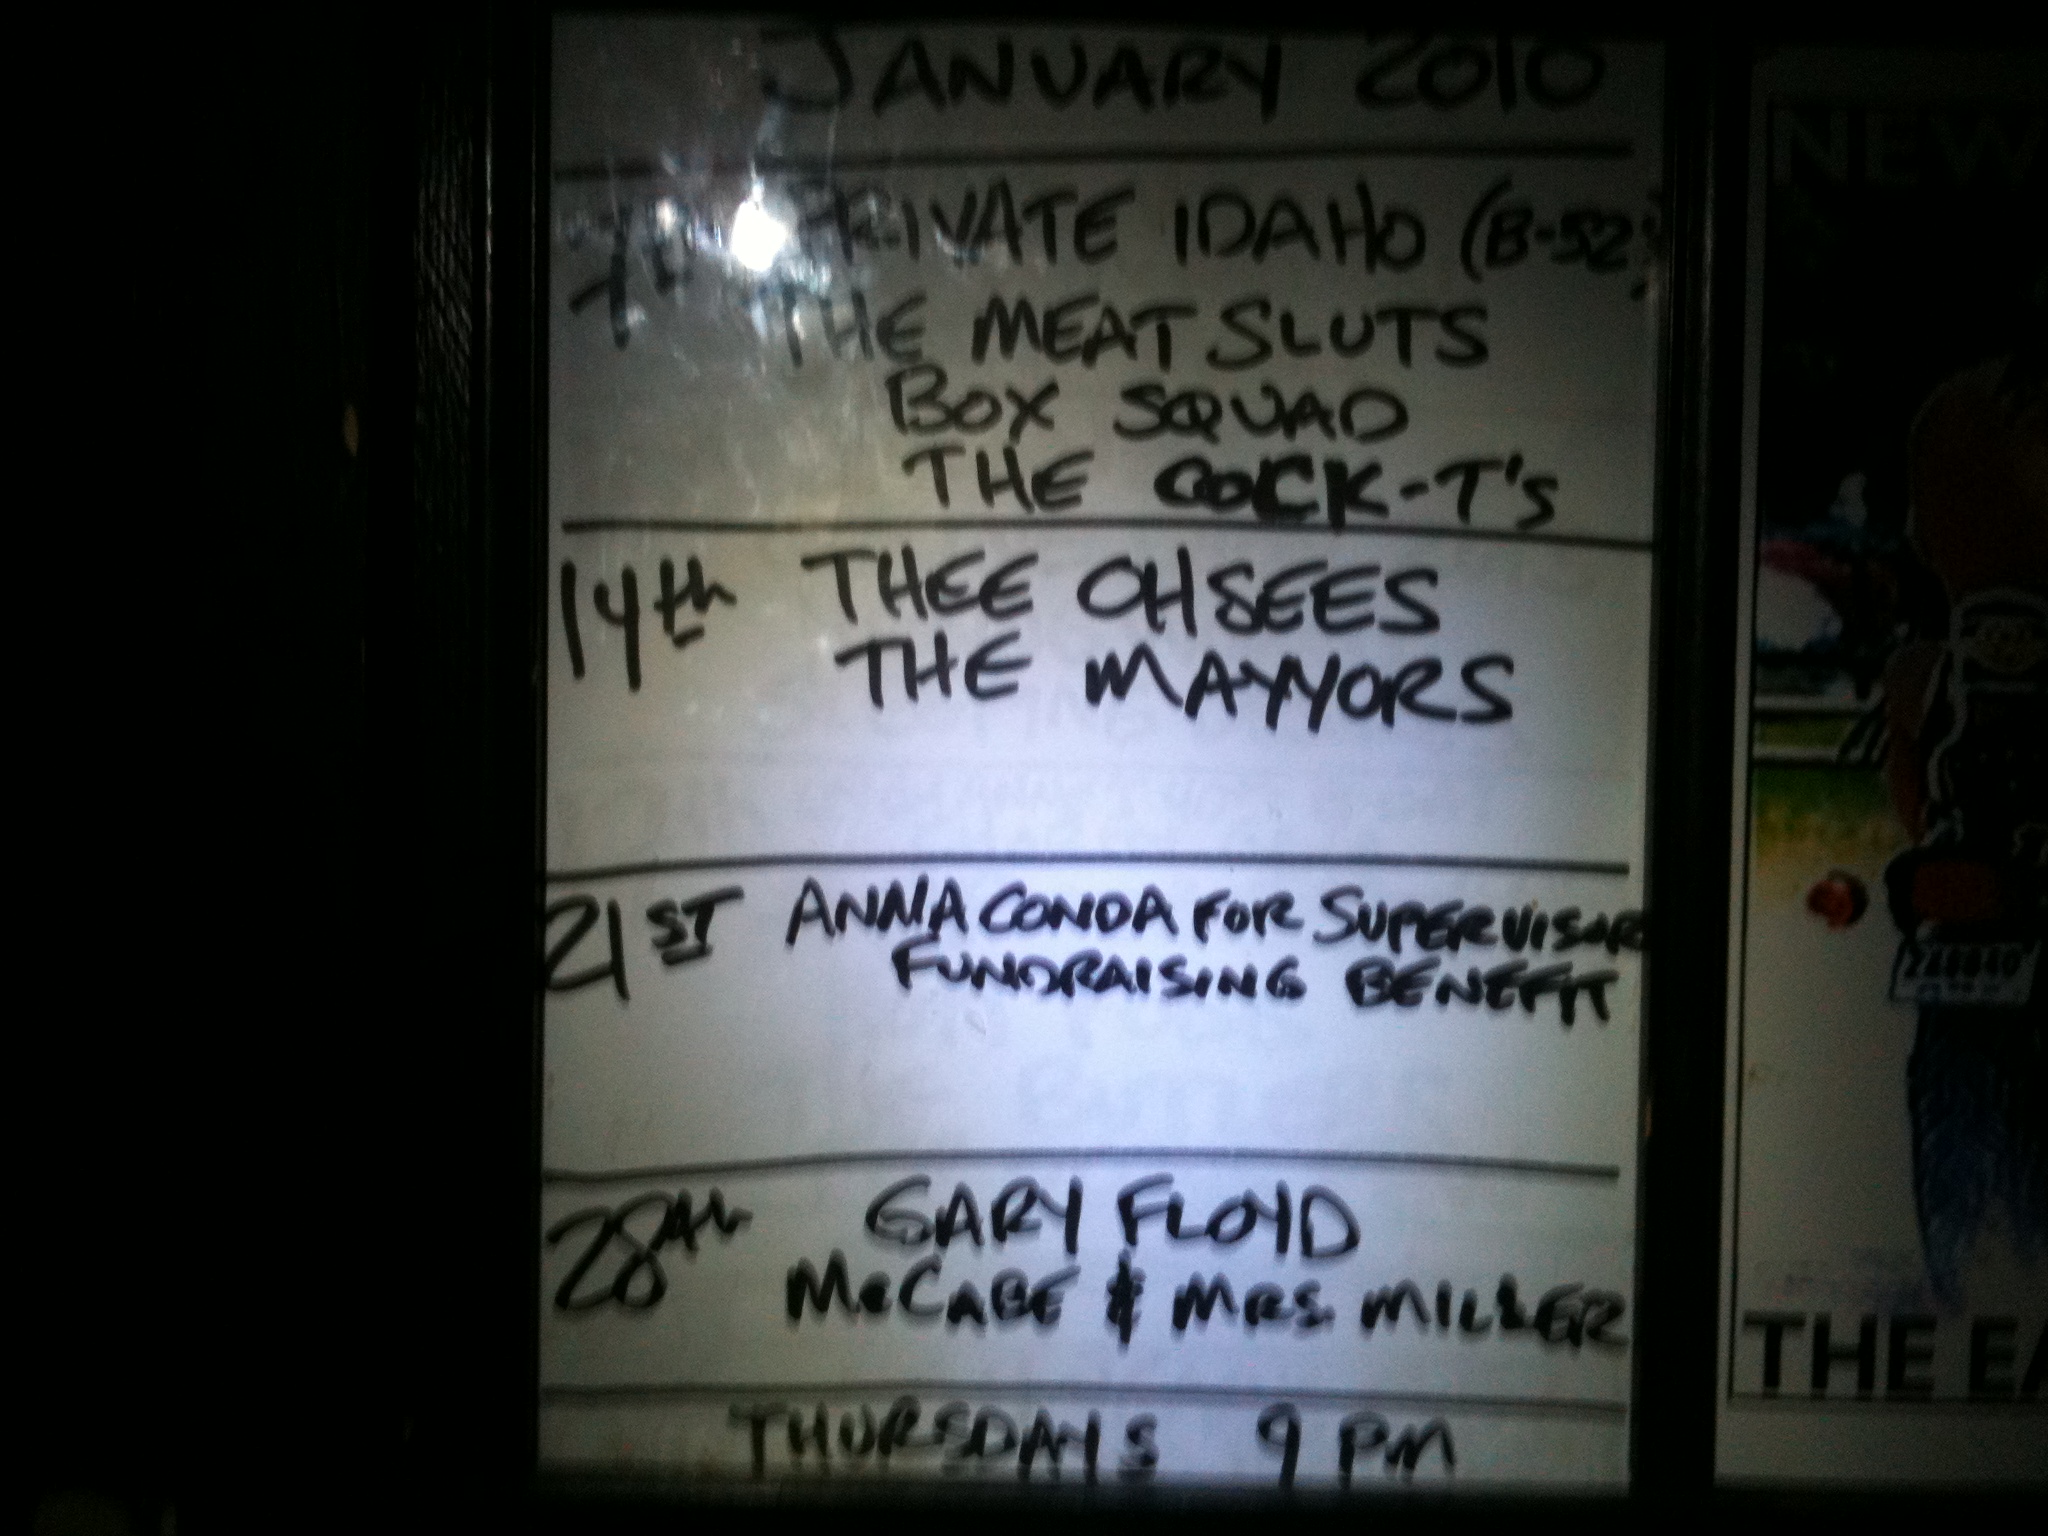 JANUARY 2010
7th PRIVATE IDAHO (B-52's)
THE MEAT SLUTS
BOX SQUAD
THE COCK-T's
14th THEE OHSEES
THE MAYYORS
21ST ANNA CONDA FOR SUPERVISOR
FUNDRAISING BENEFIT
28th GARY FLOYD
McCABE & MRS. MILLER
THURSDAYS 9 PM
NEW
THE EA